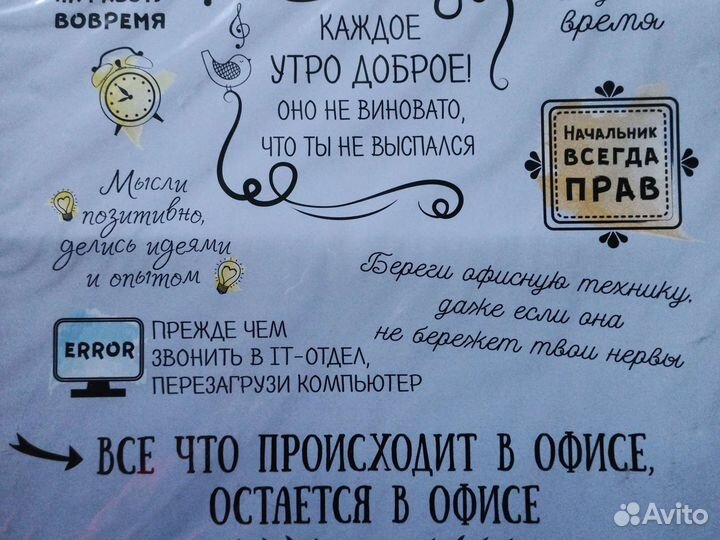 ВОВРЕМЯ
время
КАЖДОЕ
УТРО ДОБРОЕ!
ОНО НЕ ВИНОВАТО,
ЧТО ТЫ НЕ ВЫСПАЛСЯ
НАЧАЛЬНИК
ВСЕГДА
ПРАВ
Мысли
позитивно,
делись идеями
и опытом
Береги офисную технику,
даже если она
не бережет твои нервы
ERROR
ПРЕЖДЕ ЧЕМ
ЗВОНИТЬ В IT-ОТДЕЛ,
ПЕРЕЗАГРУЗИ КОМПЬЮТЕР
ВСЕ ЧТО ПРОИСХОДИТ В ОФИСЕ,
ОСТАЕТСЯ В ОФИСЕ
Avito